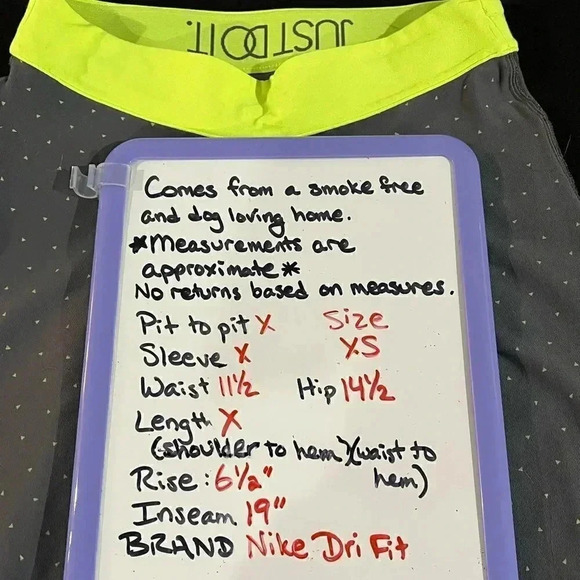 JUST DO IT.
Comes from a smoke free
and dog loving home.
*Measurements are
approximate*
No returns based on measures.
Pit to pit X Size
Sleeve X XS
Waist 11½ Hip 14½
Length X
(shoulder to hem)(waist to
hem)
Rise: 6½"
Inseam 19"
BRAND Nike Dri Fit